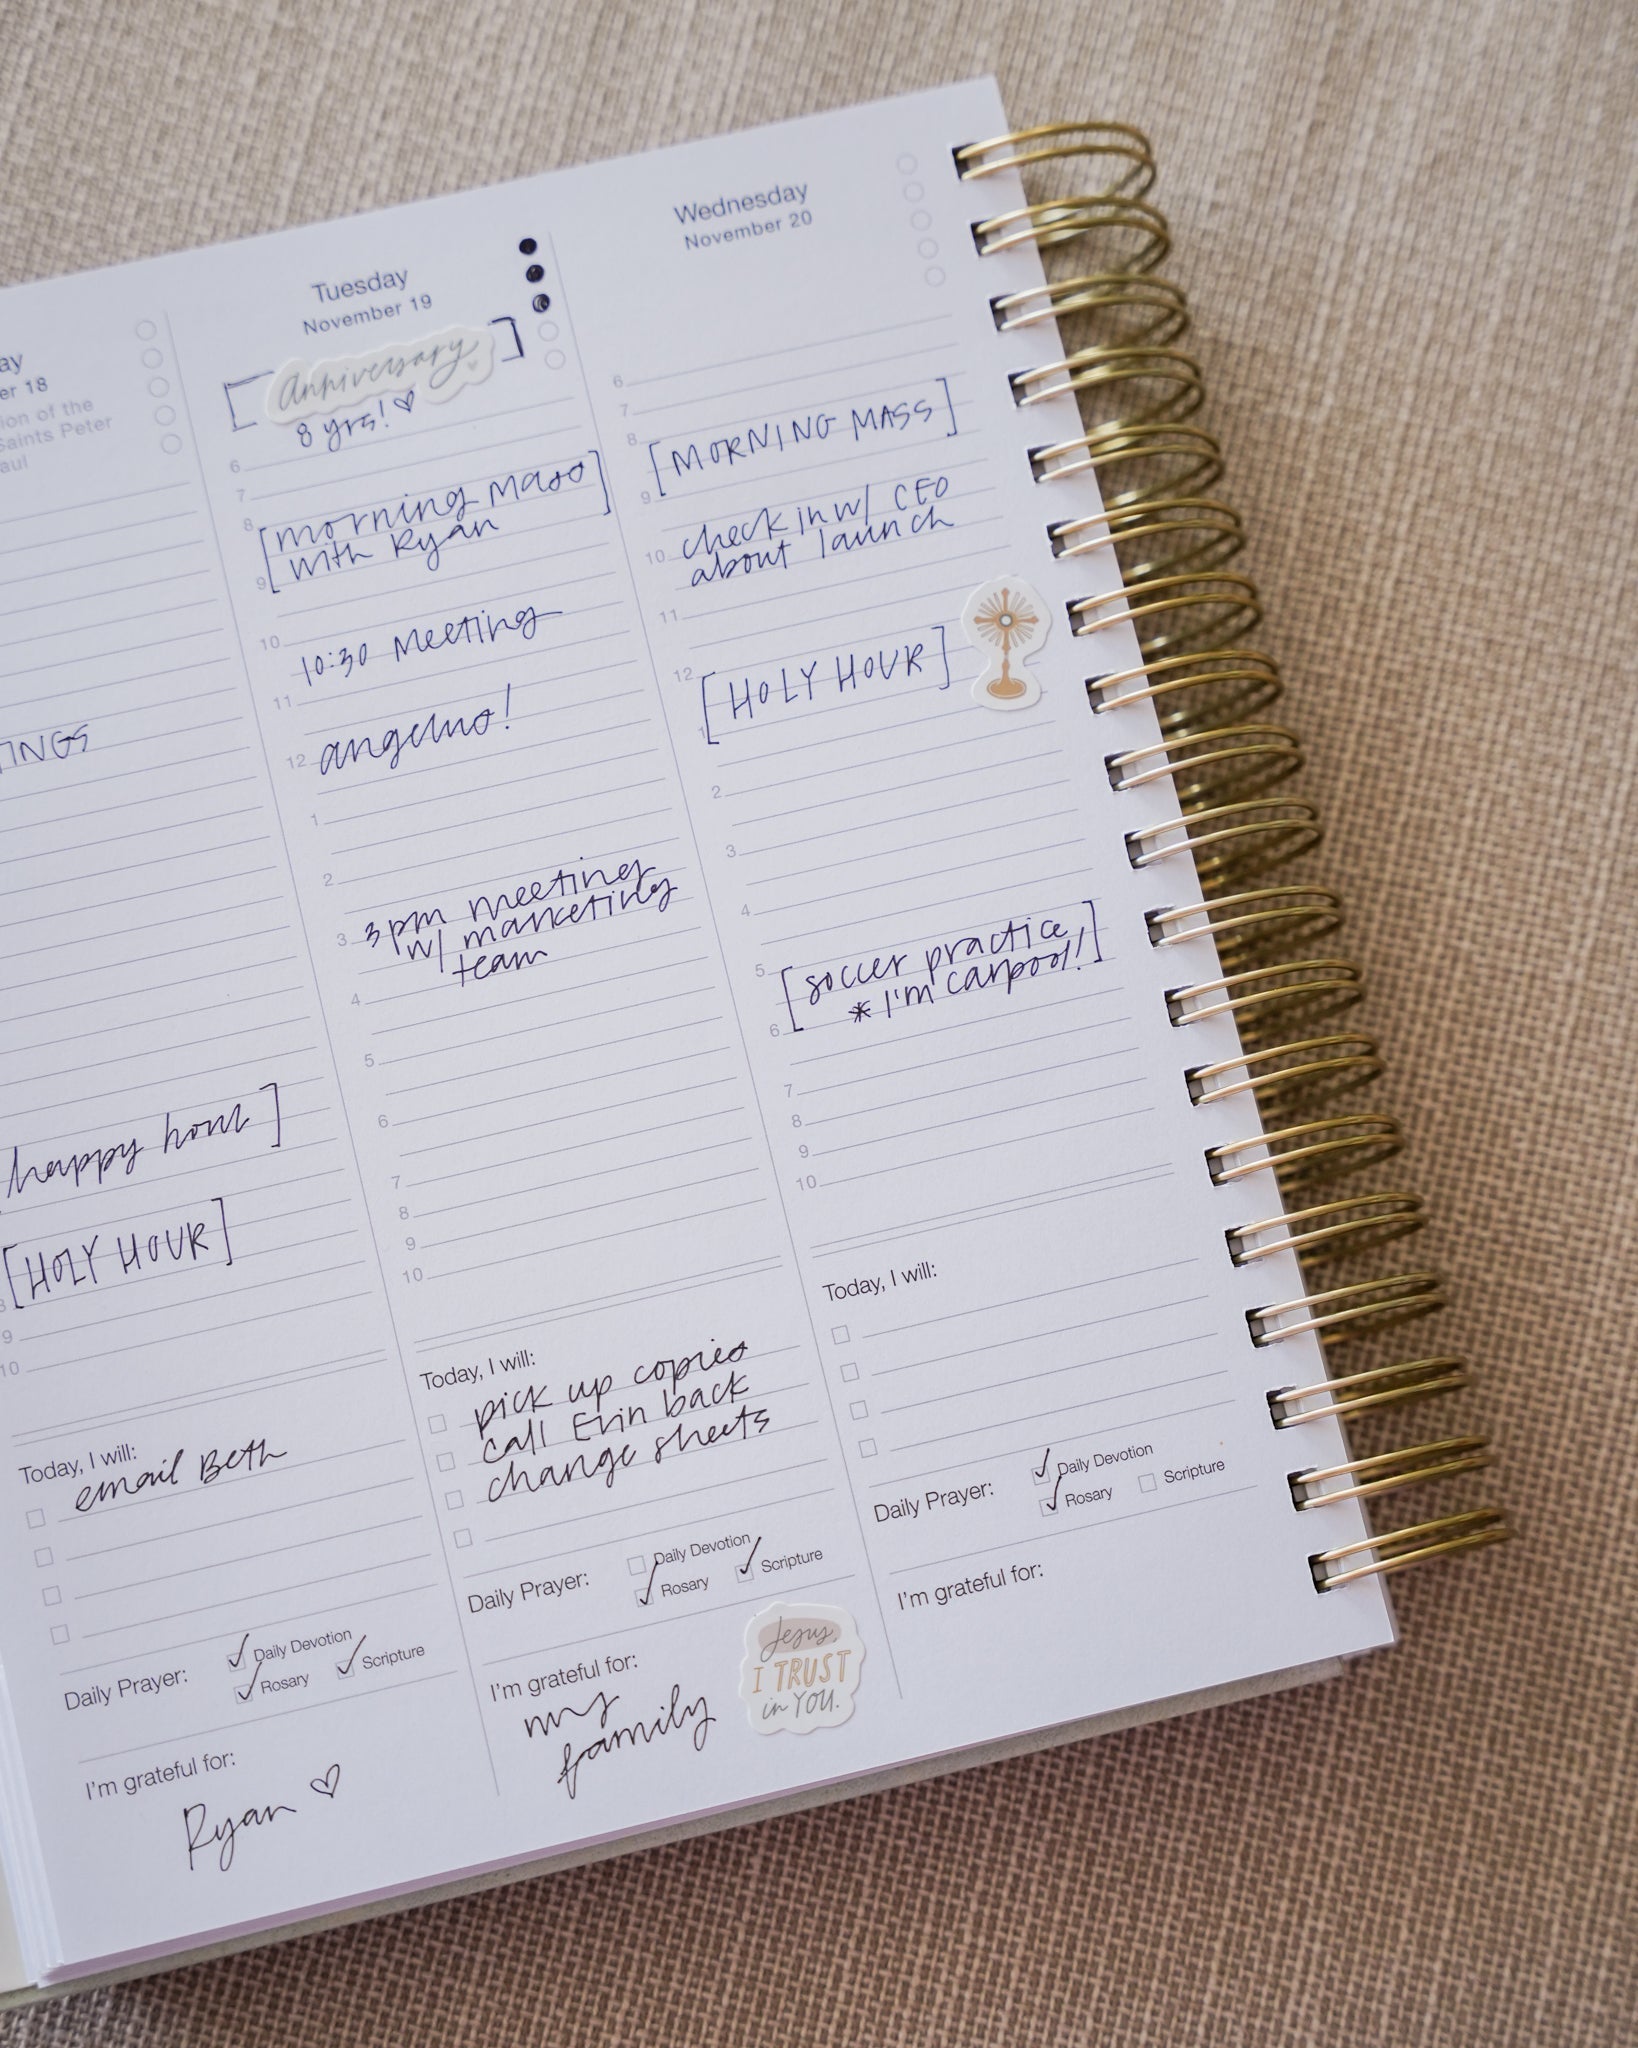 ay
er 18
ion of the
Saints Peter
aul
TINGS
happy hour ]
[HOLY HOUR]
9
10
Today, I will:
email Beth
Daily Prayer:
Daily Devotion
Rosary
Scripture
I'm grateful for:
Ryan ♡
Tuesday
November 19
[Anniversary]
8 yrs! ♡
6
7
8
[morning Mass
with Ryan]
9
10
10:30 Meeting
11
angelus!
12
1
2
3pm meeting
3
w/ marketing
team
4
5
6
7
8
9
10
Today, I will:
pick up copies
call Erin back
change sheets
Daily Prayer:
Daily Devotion
Rosary
Scripture
I'm grateful for:
my
family
Jesus,
I TRUST
in YOU.
Wednesday
November 20
6
7
8
[MORNING MASS]
9
check in w/ CEO
10
about launch
11
12
[HOLY HOUR]
2
3
4
5
[soccer practice
* I'm carpool!]
6
7
8
9
10
Today, I will:
Daily Prayer:
Daily Devotion
Rosary
Scripture
I'm grateful for: